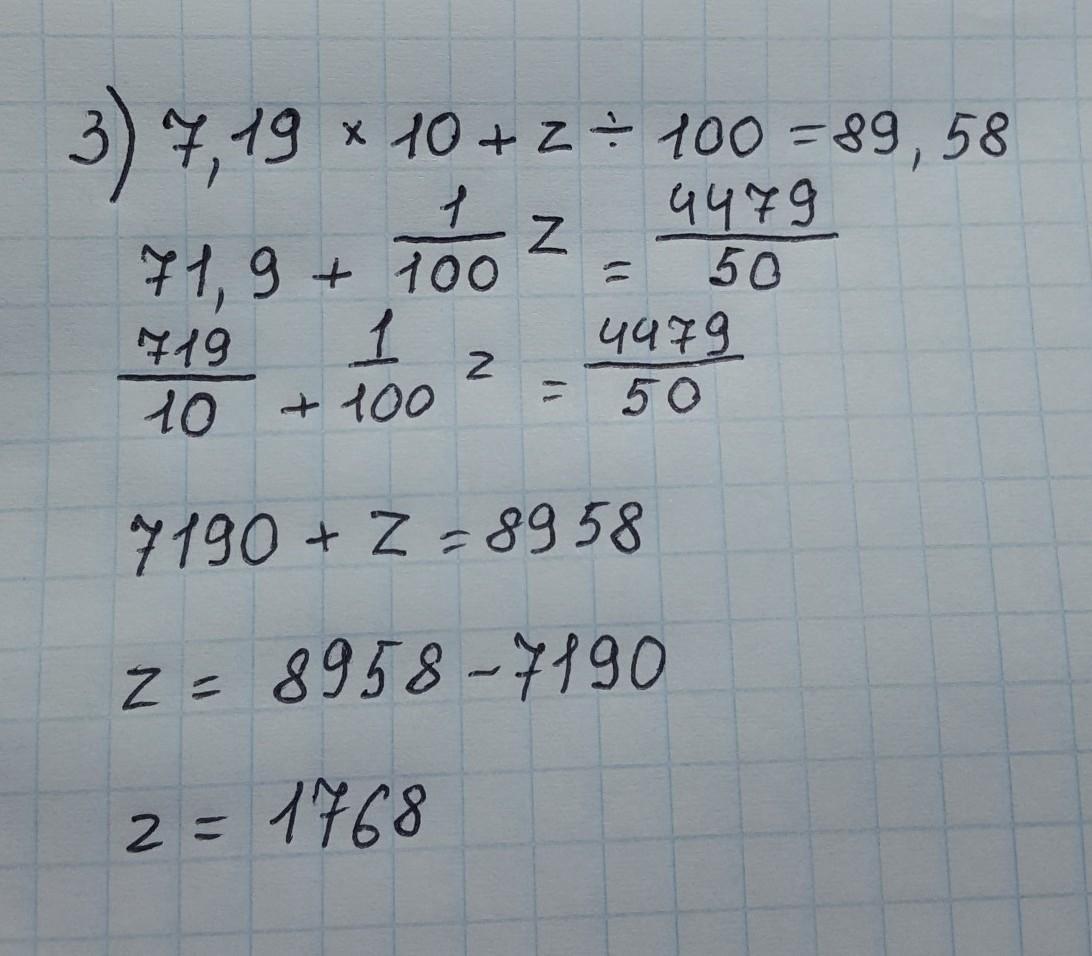 3) 7,19 × 10 + z ÷ 100 = 89,58
71,9 + 1/100 z = 4479/50
719/10 + 1/100 z = 4479/50
7190 + z = 8958
z = 8958 - 7190
z = 1768